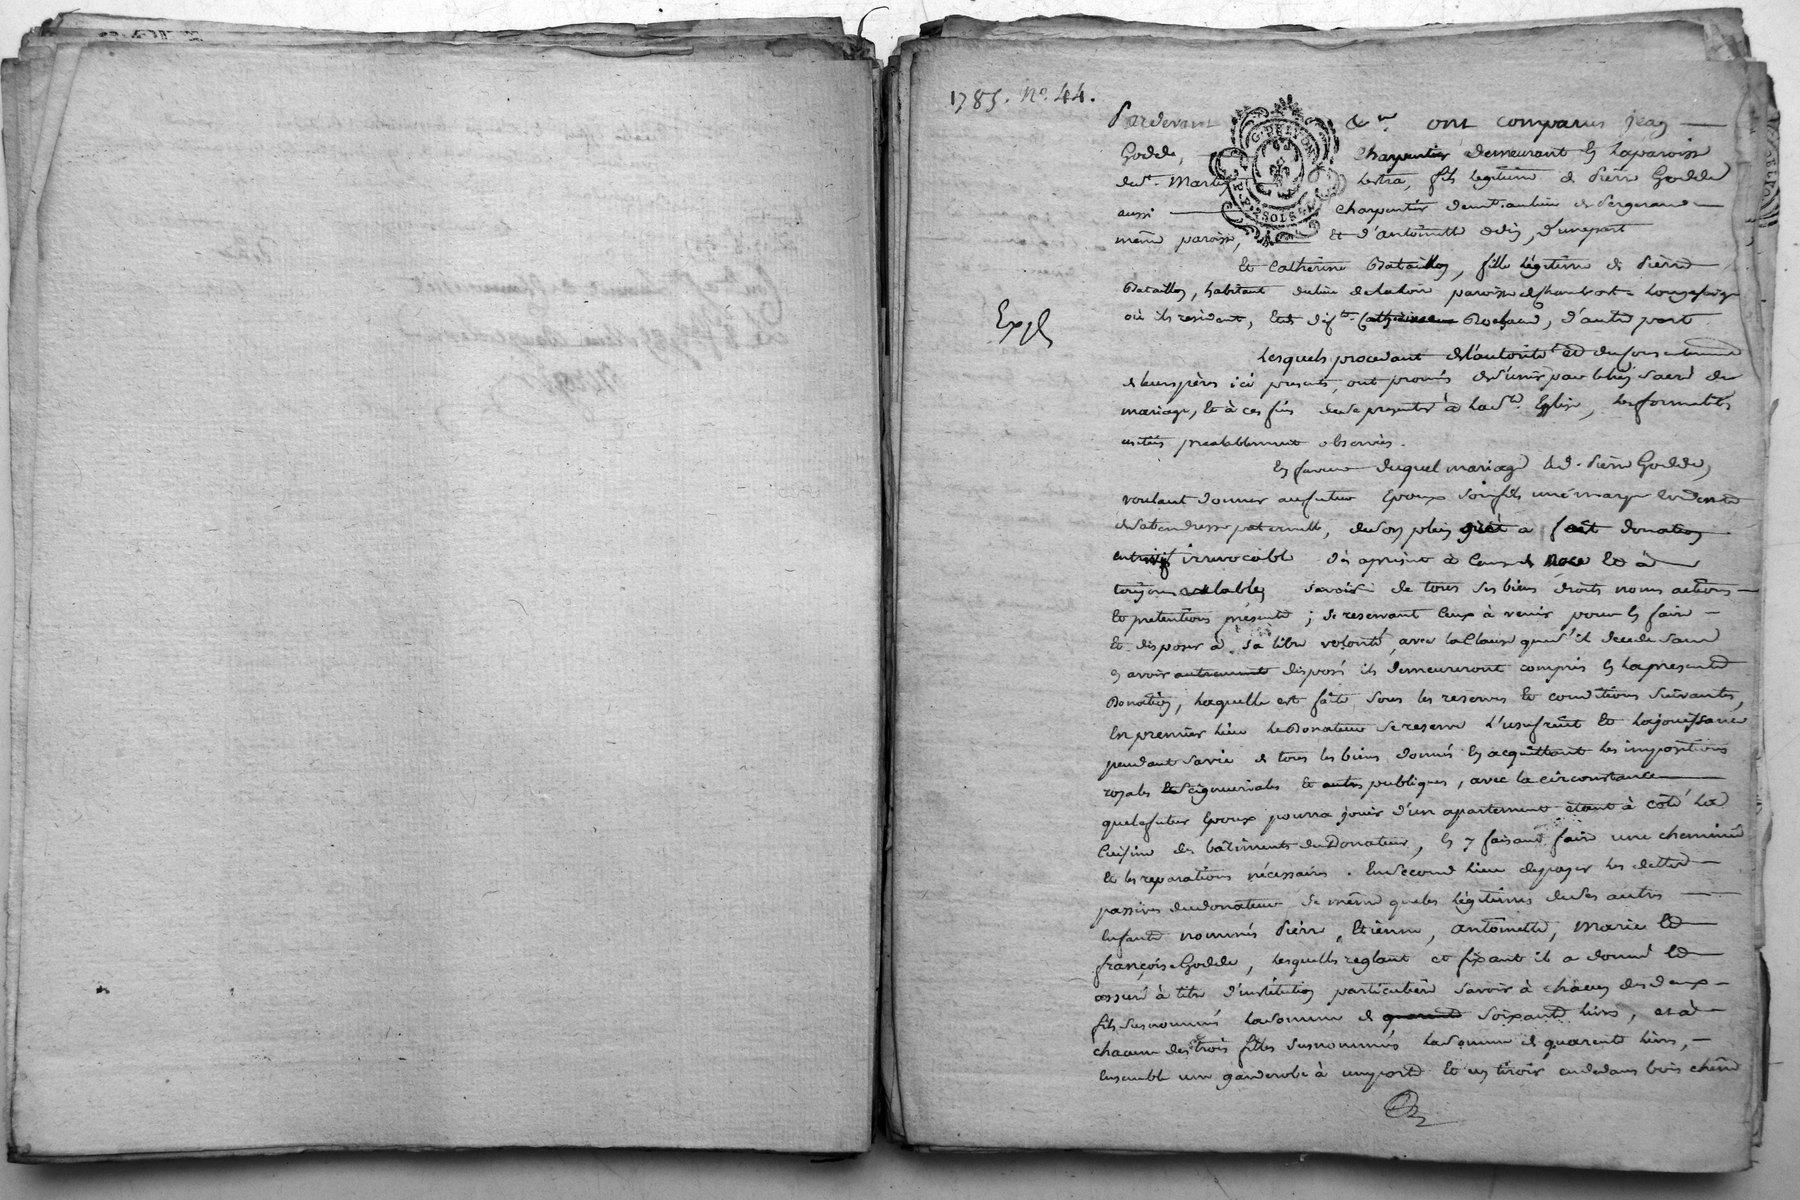 1785. N.º 44.
Pardevant &.ª ont comparus jean
G. DE LYON
P.P. 2 SOLS
Godde, charpentier demeurant En la paroisse
de S.t Martin Lestra, fils legitime de Pierre Godde
aussi charpentier dem.t au lieu de
même paroisse, et d'antoinette d'une part
Et Catherine Bataillon, fille légitime de Pierre
Bataillon, habitant du lieu de paroisse de Chambost Longessaigne
où ils resident, Et de def.te Rochard, d'autre part
Lesquels procedant de l'autorité et du consentement
de leurs pères ici presents, ont promis de s'unir par le lien sacré du
mariage, Et à ces fins de se presenter à la S.te Eglise, les formalités
usitées prealablement observées.
En faveur duquel mariage led. Pierre Godde,
voulant donner au futur Epoux son fils une marque Evidente
de sa tendresse paternelle, de son plein gré a fait donation
entrevif irrevocable dès aprésent à cause de noce Et à
toujours valable, savoir de tous ses biens droits noms actions
Et pretentions présents ; se reservant Ceux à venir pour En faire
Et disposer à sa libre volonté, avec la Clause que s'il decede sans
En avoir autrement disposé ils demeureront compris En la presente
Donation, laquelle est faite sous les reserves Et conditions suivantes,
En premier lieu le Donateur se reserve l'usufruit Et la jouissance
pendant sa vie de tous les biens donnés En acquittant les impositions
royales Et Seigneuriales Et autres publiques, avec la circonstance
que le futur Epoux pourra jouir d'un apartement étant à côté la
Cuisine des bâtiments du Donateur, En y faisant faire une cheminée
Et les reparations nécessaires. En second lieu de payer les dettes
passives du donateur de même que les légitimes de ses autres
Enfants nommés Pierre, Etienne, antoinette, Marie Et
françoise Godde, lesquelles reglant et fixant il a donné Et
assuré à titre d'institution particulière savoir à chacun des deux
fils susnommés la somme de soixante livres, et à
chacune des trois filles susnommées la somme de quarente livres,
Ensemble une garderobe à une porte Et un tiroir au dedans bois chêne